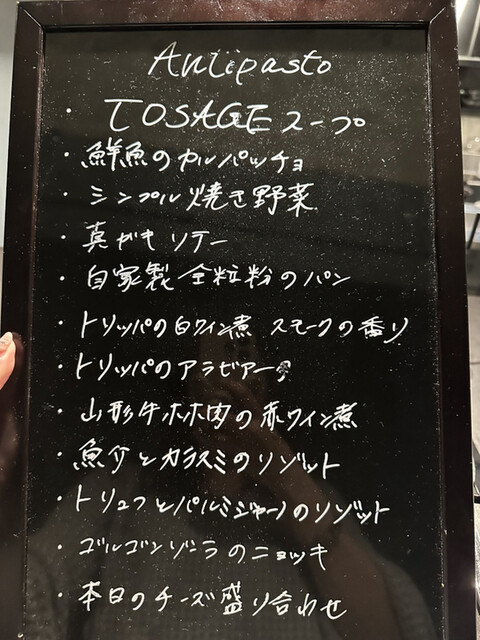 Antipasto
・TOSAGEスープ
・鮮魚のカルパッチョ
・シンプル焼き野菜
・真がキソテー
・自家製全粒粉のパン
・トリッパの白ワイン煮 スモークの香り
・トリッパのアラビアータ
・山形牛ホホ肉の赤ワイン煮
・魚介とカラスミのリゾット
・トリュフとパルミジャーノのリゾット
・ゴルゴンゾーラのニョッキ
・本日のチーズ盛り合わせ